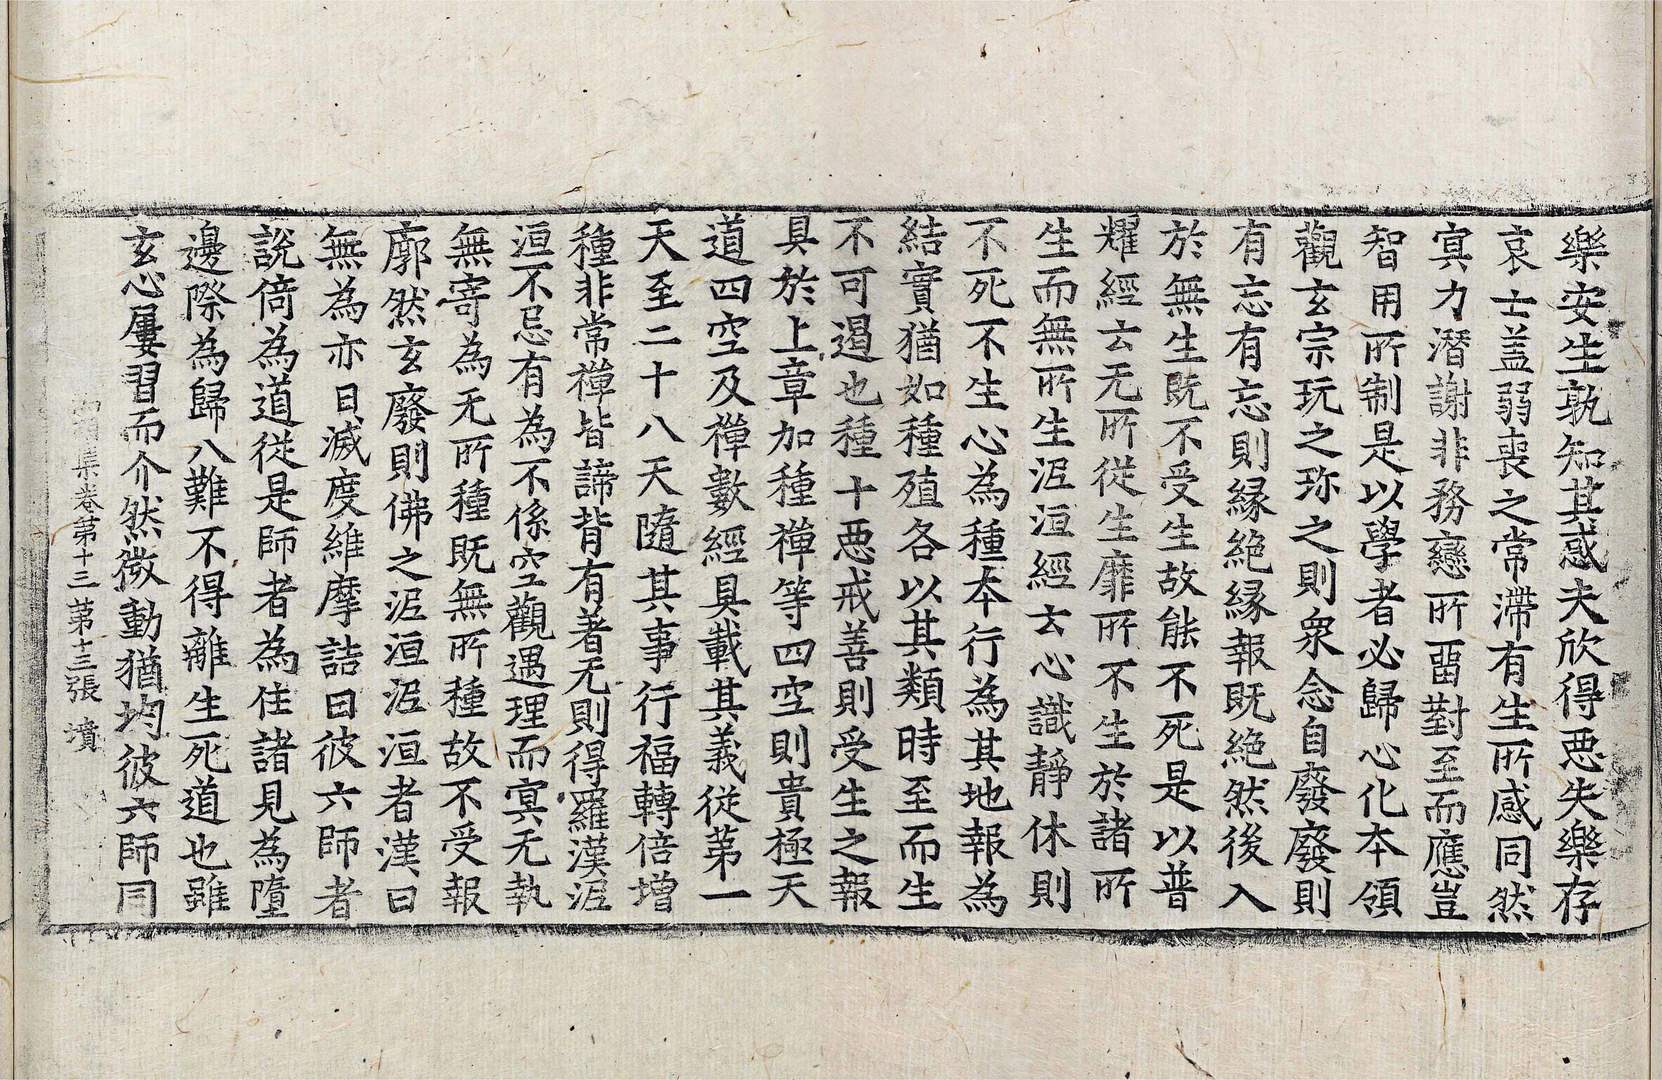 樂安生孰知其惑夫欣得惡失樂存
哀士盖弱喪之常滯有生所感同然
㝠力潛謝非務戀所畱對至而應豈
智用所制是以學者必歸心化本領
觀玄宗玩之珎之則衆念自廢廢則
有忘有忘則緣絶緣報既絶然後入
於無生既不受生故能不死是以普
耀經云无所從生靡所不生於諸所
生而無所生泥洹經云心識靜休則
不死不生心為種夲行為其地報為
結實猶如種殖各以其類時至而生
不可遏也種十惡戒善則受生之報
具於上章加種禪等四空則貴極天
道四空及禪數經具載其義從第一
天至二十八天隨其事行福轉倍增
種非常禪皆諦背有著无則得羅漢泥
洹不忌有為不係空觀遇理而㝠无執
無寄為无所種既無所種故不受報
廓然玄廢則佛之泥洹泥洹者漢曰
無為亦曰滅度維摩詰曰彼六師者
說倚為道從是師者為住諸見為墮
邊際為歸八難不得離生死道也雖
玄心屢習而介然微動猶均彼六師同
集卷第十三 第十三張 墳